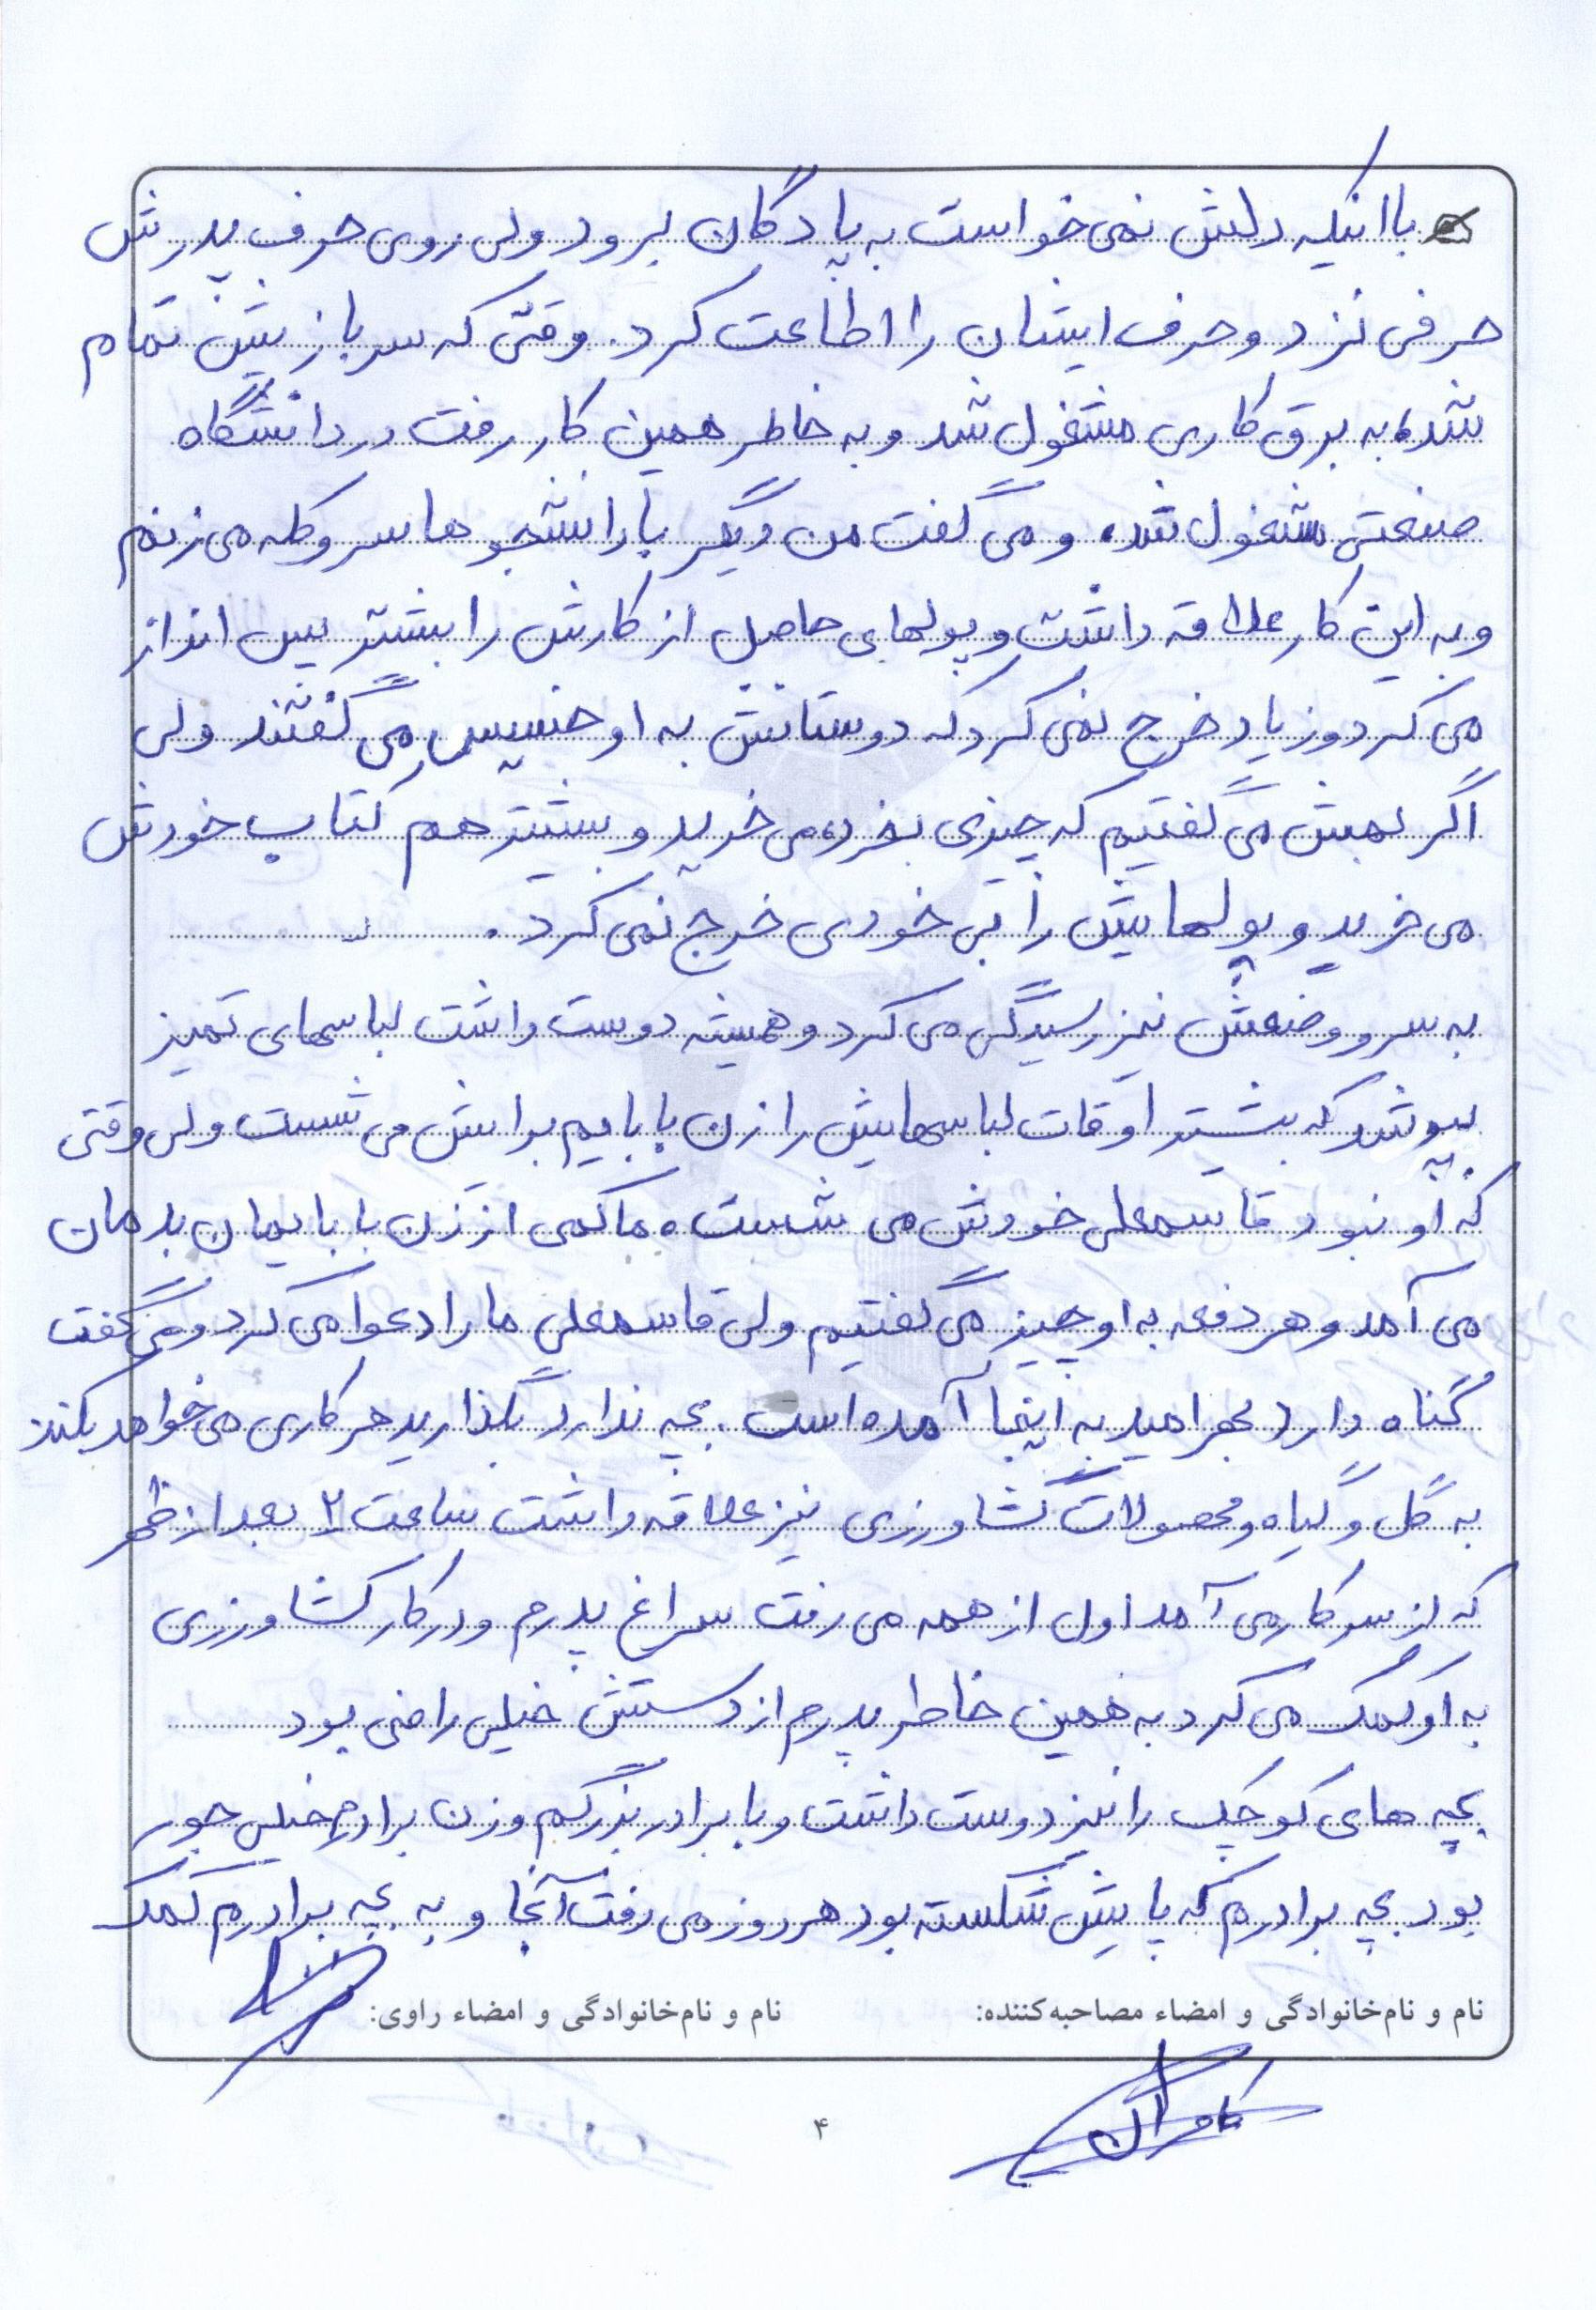 با اینکه دلش نمی خواست به پادگان برود ولی روی حرف پدرش
حرفی نزد و حرف ایشان را اطاعت کرد. وقتی که سربازیش تمام
شد، به برق کاری مشغول شد و به خاطر همین کار رفت در دانشگاه
صنعتی مشغول شد، و می گفت من دیگر با دانشجوها سر و کله می زنم
و به این کار علاقه داشت و پولهای حاصل از کارش را بیشتر پس انداز
می کرد و زیاد خرج نمی کرد که دوستانش به او خسیس می گفتند ولی
اگر بهش می گفتیم که چیزی بخرد، می خرید و بیشتر هم کتاب خودش
می خرید و پولهایش را بی خودی خرج نمی کرد.
به سر و وضعش نیز رسیدگی می کرد و همیشه دوست داشت لباسهای تمیز
بپوشد که بیشتر اوقات لباسهایش را زن بابایم برایش می شست ولی وقتی
که او نبود قاسمعلی خودش می شست، ما کمی از زن بابایمان بدمان
می آمد و هر دفعه به او چیز می گفتیم ولی قاسمعلی ما را دعوا می کرد و می گفت
گناه دارد بهر امید به اینجا آمده است. بچه ندارد بگذارید هر کاری می خواهد بکند
به گل و گیاه و محصولات کشاورزی نیز علاقه داشت ساعت ۲ بعد از ظهر
که از سر کار می آمد اول از همه می رفت سراغ پدرم و در کار کشاورزی
به او کمک می کرد به همین خاطر پدرم از دستش خیلی راضی بود
بچه های کوچک را نیز دوست داشت و با برادر بزرگم و زن برادرم خیلی جور
بود بچه برادرم که پایش شکسته بود هر روز می رفت آنجا و به بچه برادرم کمک
نام و نام‌خانوادگی و امضاء مصاحبه‌کننده: نام و نام‌خانوادگی و امضاء راوی:
کامران
۴